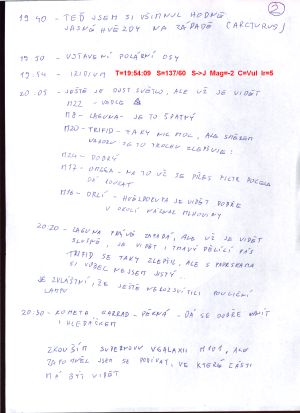 2
19 40 - TEĎ JSEM SI VŠIMNUL HODNĚ
JASNÉ HVĚZDY NA ZÁPADĚ (ARCTURUS)
19 50 - USTAVENÍ POLÁRNÍ OSY
19 54 - IRIDIUM T=19:54:09 S=137/60 S->J Mag=-2 C=Vul Ir=5
20:05 - JEŠTĚ JE DOST SVĚTLO, ALE UŽ JE VIDĚT
M22 - VEDLE
M8 - LAGUNA - JE TO ŠPATNÝ
M20 - TRIFID - TAKY NIC MOC, ALE SMĚREM
NAHORU SE TO TROCHU ZLEPŠUJE:
M24 - DOBRÝ
M17 - OMEGA - NA TO UŽ SE PŘES FILTR DOCELA
DÁ KOUKAT
M16 - ORLÍ - HVĚZDOKUPA JE VIDĚT DOBŘE
V OKOLÍ NÁZNAK MLHOVINY
20:20 - LAGUNA PRÁVĚ ZAPADÁ, ALE UŽ JE VIDĚT
SLUŠNĚ, JE VIDĚT I TMAVÝ DĚLÍCÍ PÁS
TRIFID SE TAKY ZLEPŠIL, ALE S PAPRSKAMA
SI VŮBEC NEJSEM JISTÝ.
JE ZVLÁŠTNÍ, ŽE JEŠTĚ NEROZSVÍTILI POULIČNÍ
LAMPU
20:30 - KOMETA GARRAD - PĚKNÁ - DÁ SE DOBŘE VIDĚT
I HLEDÁČKEM
ZKOUŠÍM SUPERNOVU V GALAXII M101, ALE
ZAPOMNĚL JSEM SE PODÍVAT, VE KTERÉ ČÁSTI
MÁ BÝT VIDĚT